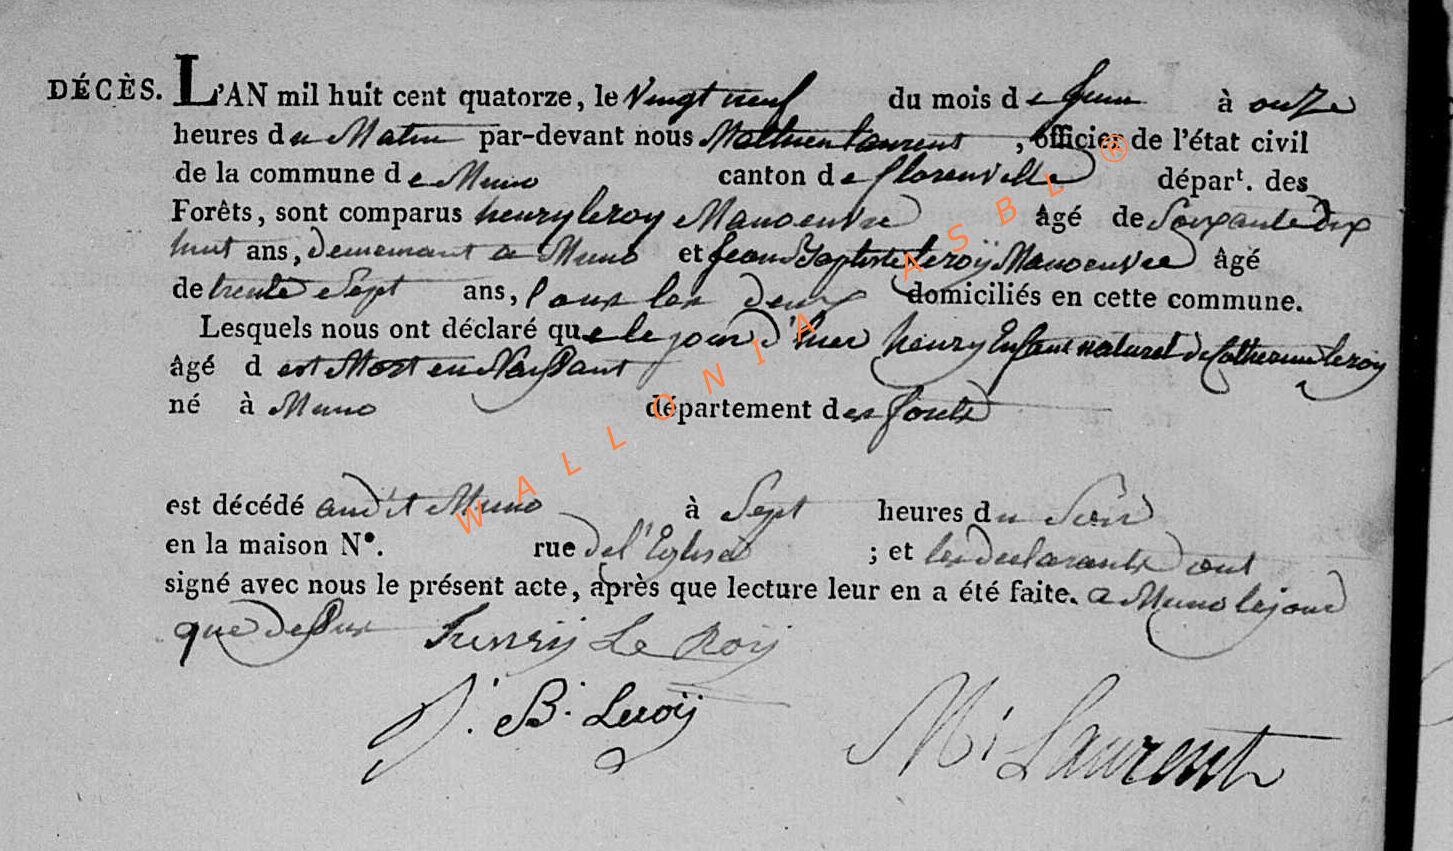 DÉCÈS. L'AN mil huit cent quatorze, le vingt neuf du mois de juin à onze
heures du Matin par-devant nous Mathieu Laurent, officier de l'état civil
de la commune de Muno canton de florenville départ. des
Forêts, sont comparus henry leroy Manoeuvre âgé de Soixante dix
huit ans, demeurant a Muno et jean Baptiste leroÿ Manoeuvre âgé
de trente Sept ans, tous les deux domiciliés en cette commune.
Lesquels nous ont déclaré que le jour d'hier henry Enfant naturel de Catherine leroy
âgé d est Mort en Naissant
né à Muno département des forets
est décédé audit Muno à Sept heures du Soir
en la maison N°. rue de l'Eglise ; et les declarants ont
signé avec nous le présent acte, après que lecture leur en a été faite. a Muno le jour
que dessus Henrÿ Le Roÿ
J. B. Leroÿ
M. Laurent
WALLONIA ASBL ®